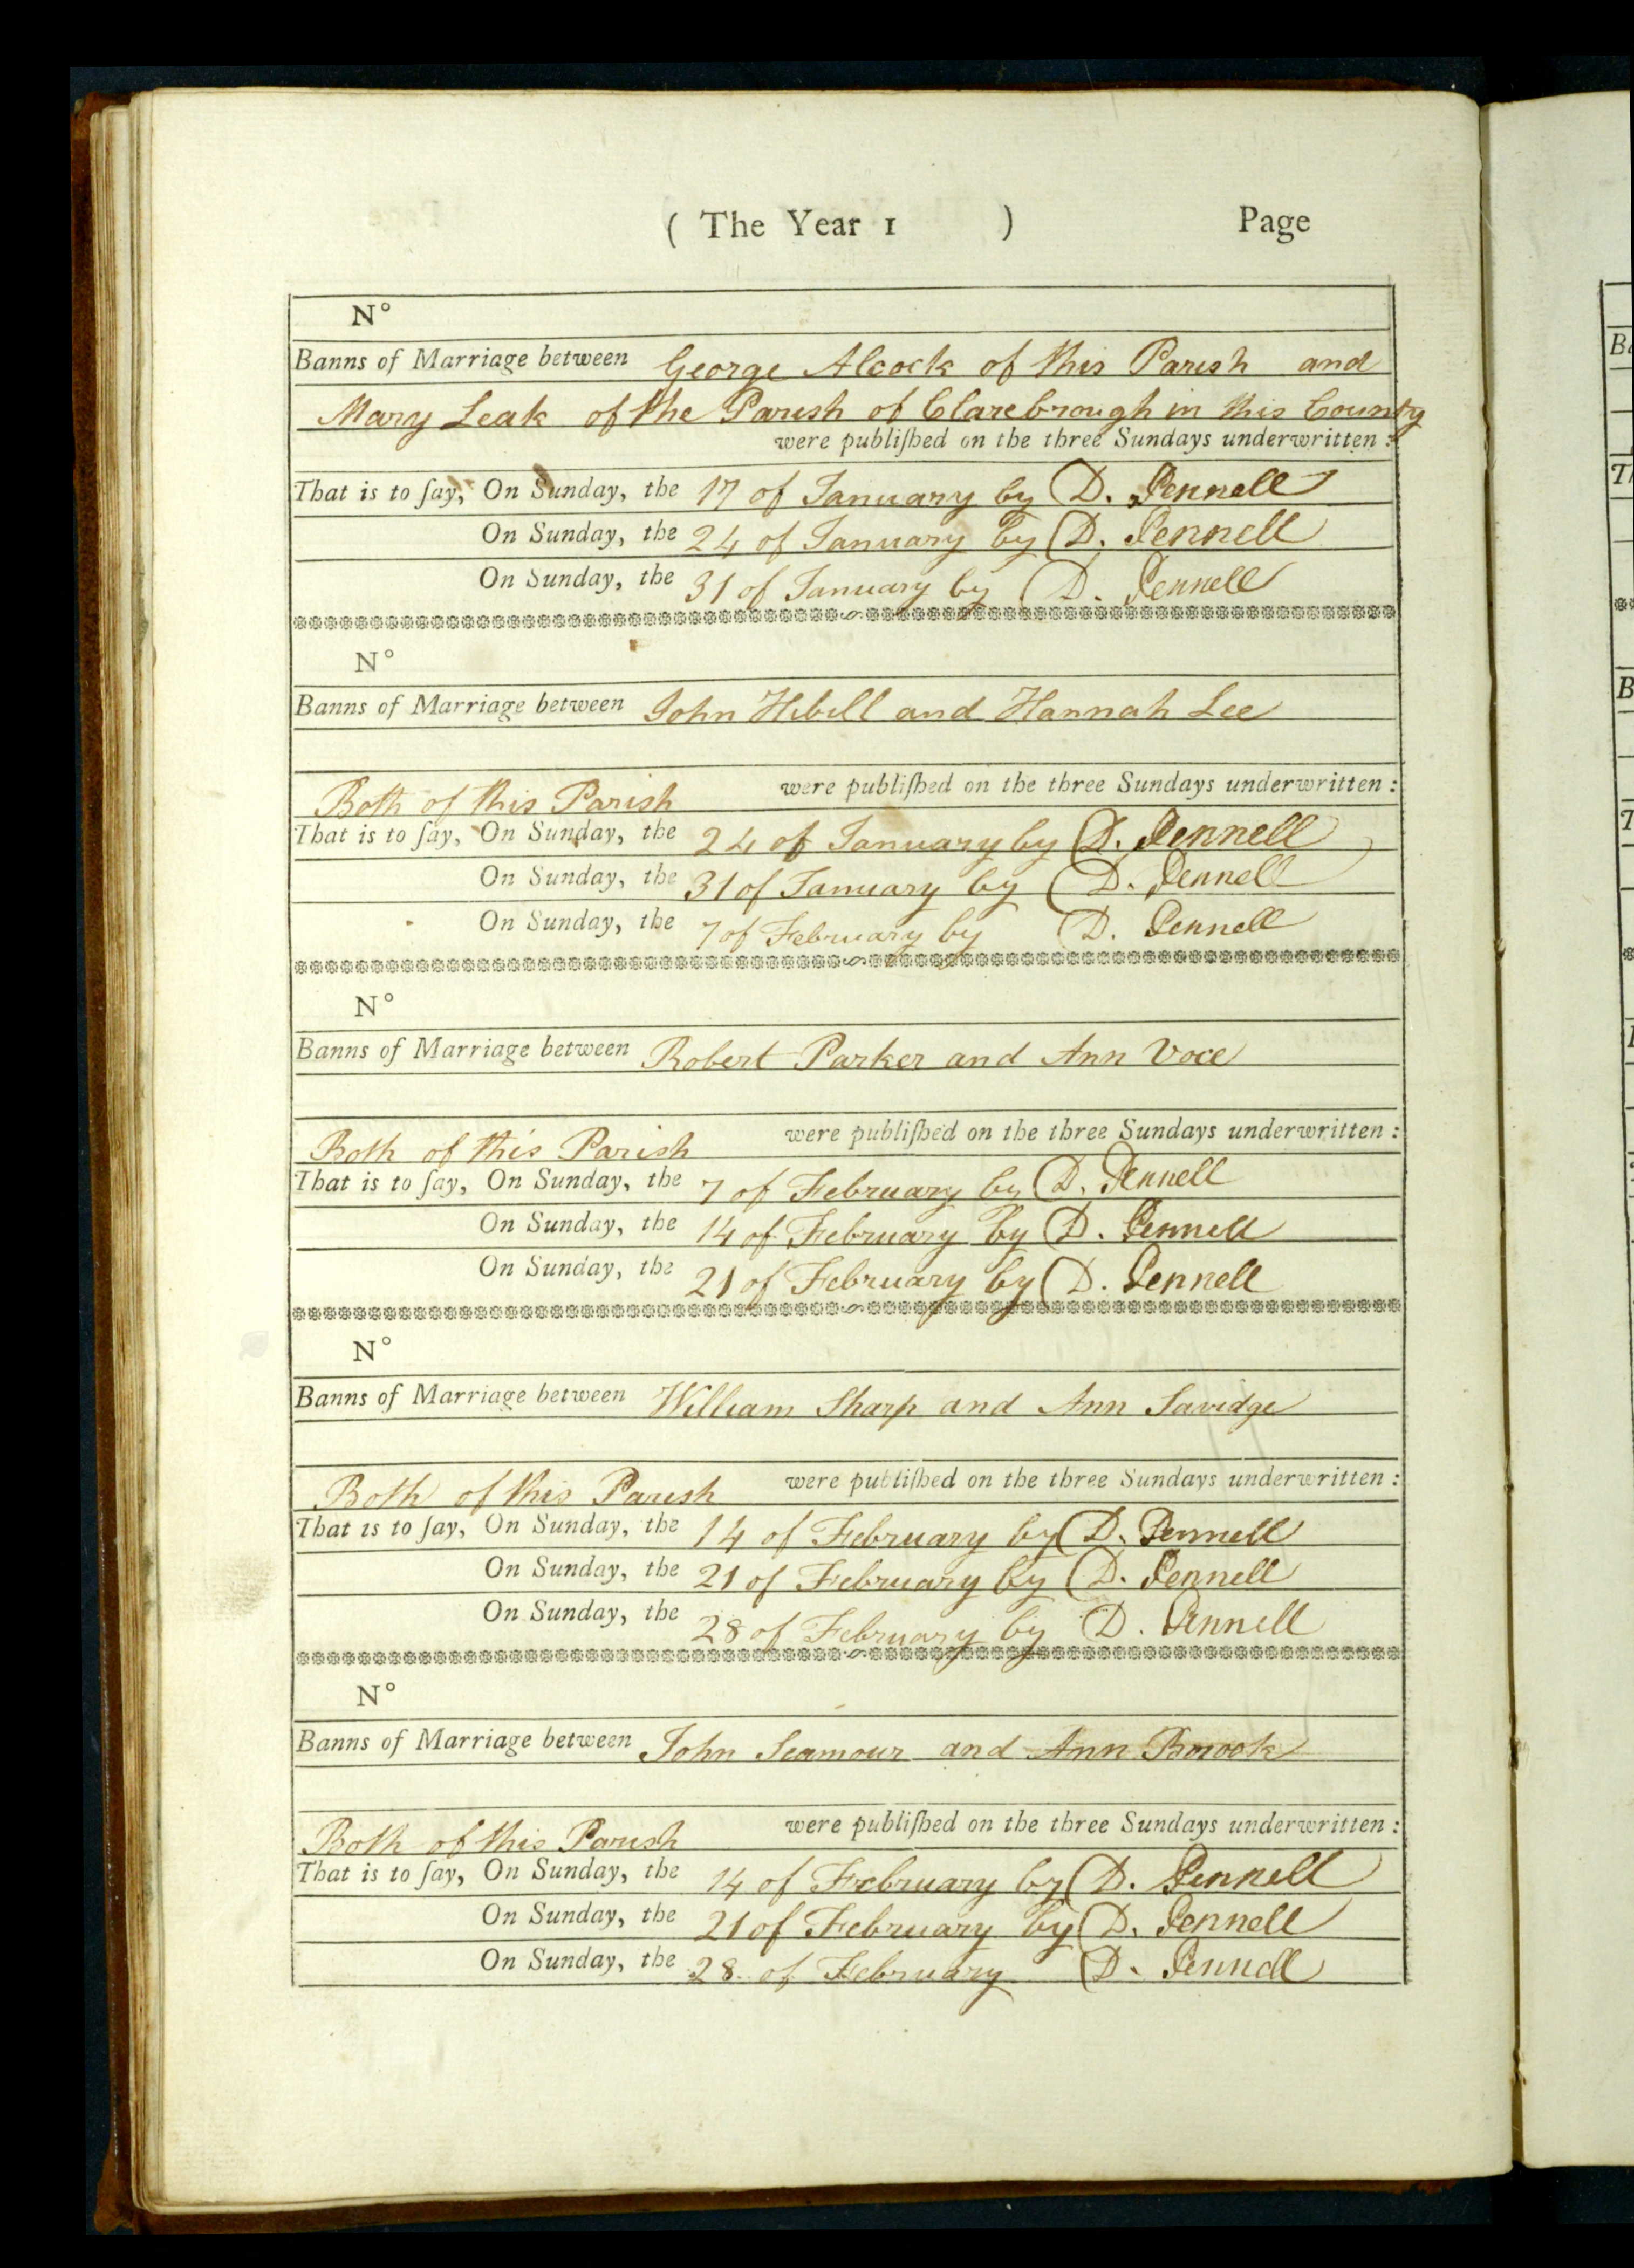 ( The Year 1 ) Page
N°
Banns of Marriage between George Alcock of this Parish and
Mary Leak of the Parish of Clarebrough in this County
were publiſhed on the three Sundays underwritten :
That is to ſay, On Sunday, the 17 of January by D. Pennell
On Sunday, the 24 of January by D. Pennell
On Sunday, the 31 of January by D. Pennell
N°
Banns of Marriage between John Hibell and Hannah Lee
Both of this Parish were publiſhed on the three Sundays underwritten :
That is to ſay, On Sunday, the 24 of January by D. Pennell
On Sunday, the 31 of January by D. Pennell
On Sunday, the 7 of February by D. Pennell
N°
Banns of Marriage between Robert Parker and Ann Voce
Both of this Parish were publiſhed on the three Sundays underwritten :
That is to ſay, On Sunday, the 7 of February by D. Pennell
On Sunday, the 14 of February by D. Pennell
On Sunday, the 21 of February by D. Pennell
N°
Banns of Marriage between William Sharp and Ann Savidge
Both of this Parish were publiſhed on the three Sundays underwritten :
That is to ſay, On Sunday, the 14 of February by D. Pennell
On Sunday, the 21 of February by D. Pennell
On Sunday, the 28 of February by D. Pennell
N°
Banns of Marriage between John Seamour and Ann
Both of this Parish were publiſhed on the three Sundays underwritten :
That is to ſay, On Sunday, the 14 of February by D. Pennell
On Sunday, the 21 of February by D. Pennell
On Sunday, the 28 of February D. Pennell